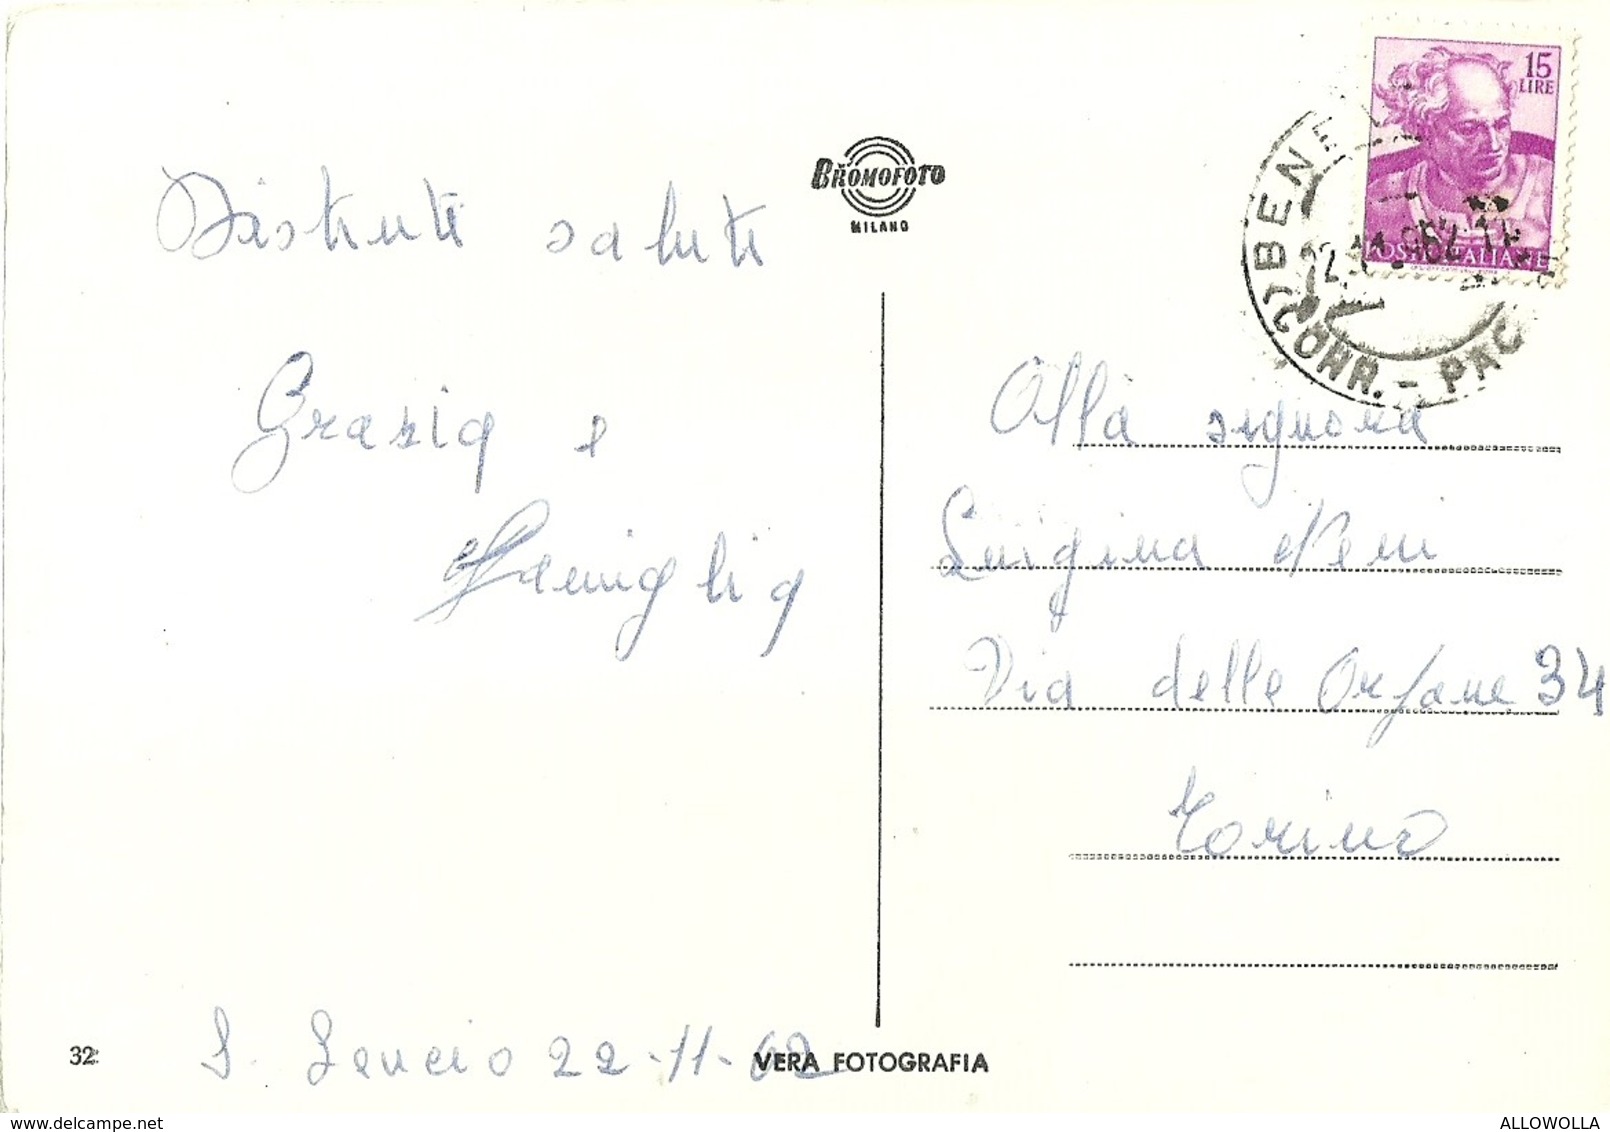 Distinti saluti
Grazia e
Famiglia
S. Leucio 22-11-62
32
BROMOFOTO
MILANO
VERA FOTOGRAFIA
15
LIRE
POSTE ITALIANE
BENE
CORR. - PAC
Alla signora
Luigina Neni
Via delle Orfane 34
Torino
ALLOWOLLA